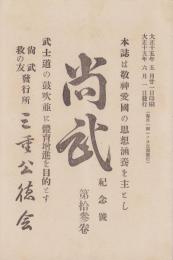 大正十五年五月廿一日印刷
大正十五年六月一日發行
本誌は敬神愛國の思想涵養を主とし
尚武
紀念號
第拾參卷
武士道の鼓吹並に體育增進を目的とす
尚武發行所
救の友
三重公徳会